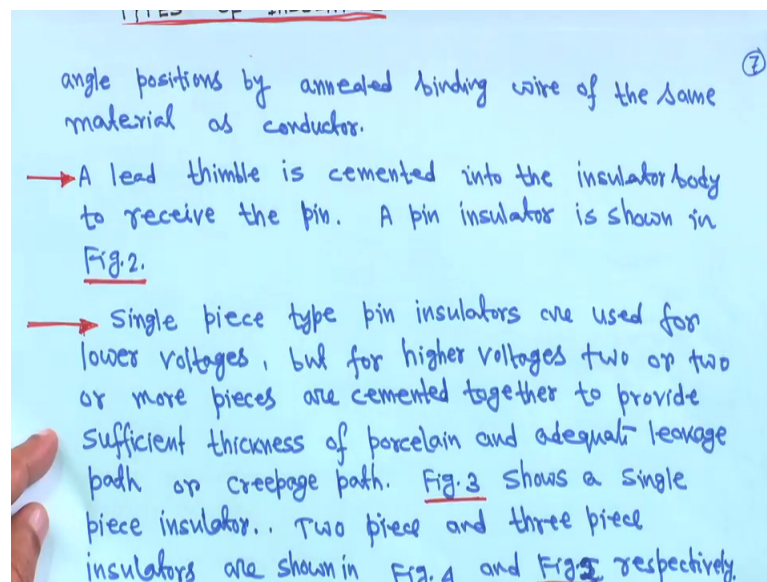 TYPES OF
⑦
angle positions by annealed binding wire of the same
material as conductor.
→ A lead thimble is cemented into the insulator body
to receive the pin. A pin insulator is shown in
Fig.2.
→ Single piece type pin insulators are used for
lower voltages, but for higher voltages two or two
or more pieces are cemented together to provide
sufficient thickness of porcelain and adequate leakage
path or creepage path. Fig.3 shows a single
piece insulator.. Two piece and three piece
insulators are shown in Fig.4 and Fig5 respectively